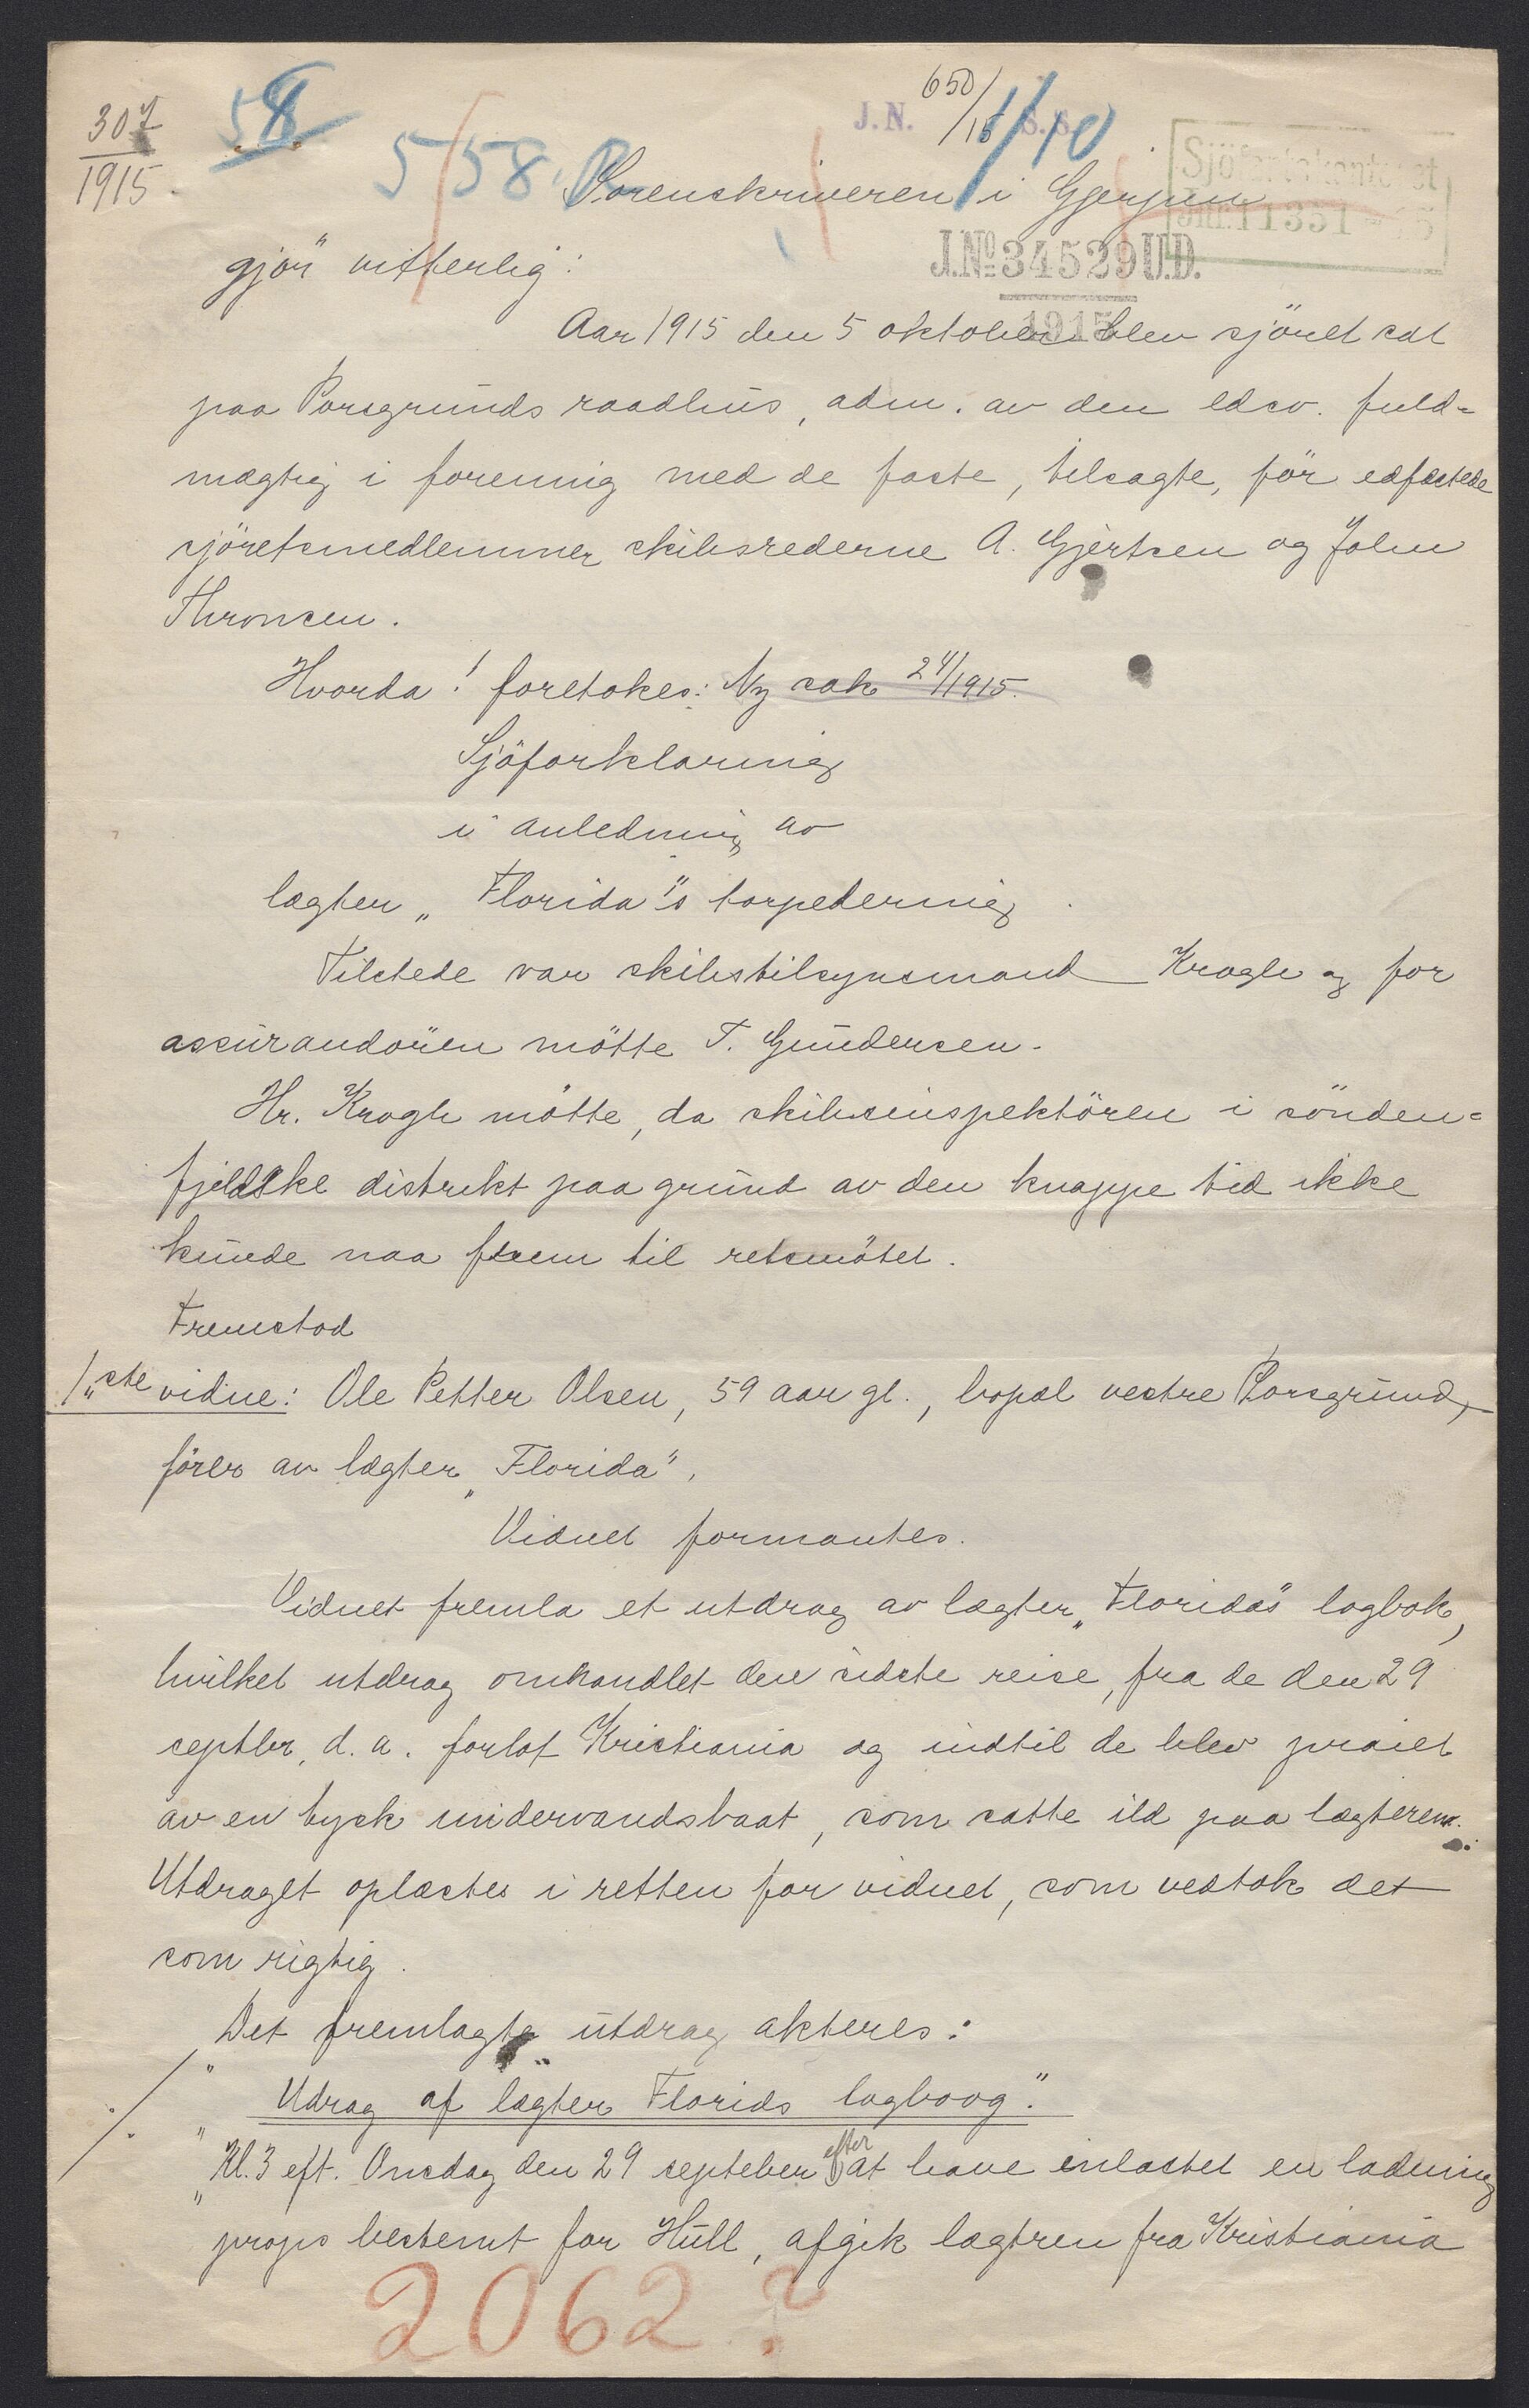 307
1915.
58
5/58.
J.N. 650/15 S.S.
1/10
Sjöfartskontoret
Jnr. 11351 - 15
Sorenskriveren i Gjerpen
gjör vitterlig:
J.No 34529 U.D.
1915
Aar 1915 den 5 oktober blev sjöret sat
paa Porsgrunds raadhus, adm. av den edsv. fuld=
mægtig i forening med de faste, tilsagte, för edfæstede
sjöretsmedlemmer skibsrederne A. Gjertsen og John
Thronsen.
Hvorda! foretokes: Ny sak 24/1915.
Sjöforklaring
i anledning av
lægter "Florida"s torpedering.
Tilstede var skibstilsynsmand Krogh og for
assurandören mötte T. Gundersen.
Hr. Krogh mötte, da skibsinspektören i sönden=
fjeldske distrikt paa grund av den knappe tid ikke
kunde naa frem til retsmötet.
Fremstod
1"ste vidne: Ole Petter Olsen, 59 aar gl., bopæl vestre Porsgrund,
förer av lægter "Florida",
Vidnet formantes.
Vidnet fremla et utdrag av lægter "Florida's" logbok,
hvilket utdrag omhandlet den sidste reise, fra de den 29
septbr. d.a. forlot Kristiania og indtil de blev praiet
av en tysk undervandsbaat, som satte ild paa lægteren.
Utdraget oplæstes i retten for vidnet, som vedtok det
som rigtig.
Det fremlagte utdrag akteres:
./. " Udrag af lægter Florids logboog."
" Kl. 3 eft. Onsdag den 29 septeber efter at have inlastet en ladning
" props bestemt for Hull, afgik lægtren fra Kristiania
2062?